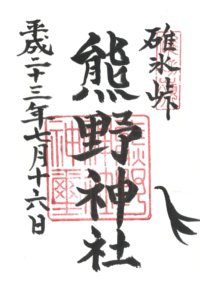 碓氷峠
熊野神社
平成二十三年七月十六日